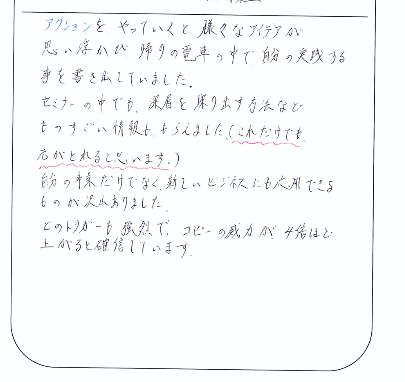 アクションを やっていくと、様々なアイデアが
思い浮かび 帰りの電車の中で自分の実践する
事を書き出していました。
セミナーの中でも、深層を採り出す方法など
ものすごい情報も、もらえました(これだけでも、
元がとれると思います。)
自分の事業だけでなく、新しいビジネスにも応用できる
ものが沢山ありました。
どのトリガーも強烈で、コピーの威力が、4倍ほど
上がると確信しています。